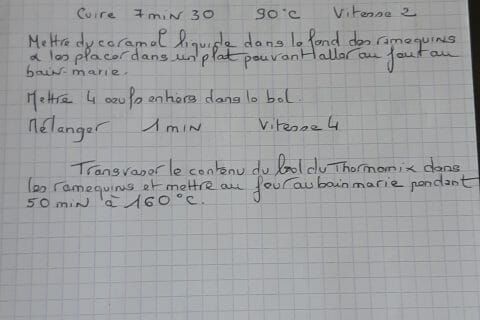 Cuire 7 min 30 90°C Vitesse 2
Mettre du caramel liquide dans le fond des ramequins
& les placer dans un plat pouvant aller au four au
bain-marie.
Mettre 4 oeufs entiers dans le bol.
Mélanger 1 min Vitesse 4
Transvaser le contenu du bol du Thermomix dans
les ramequins et mettre au four au bain marie pendant
50 min à 160°C.